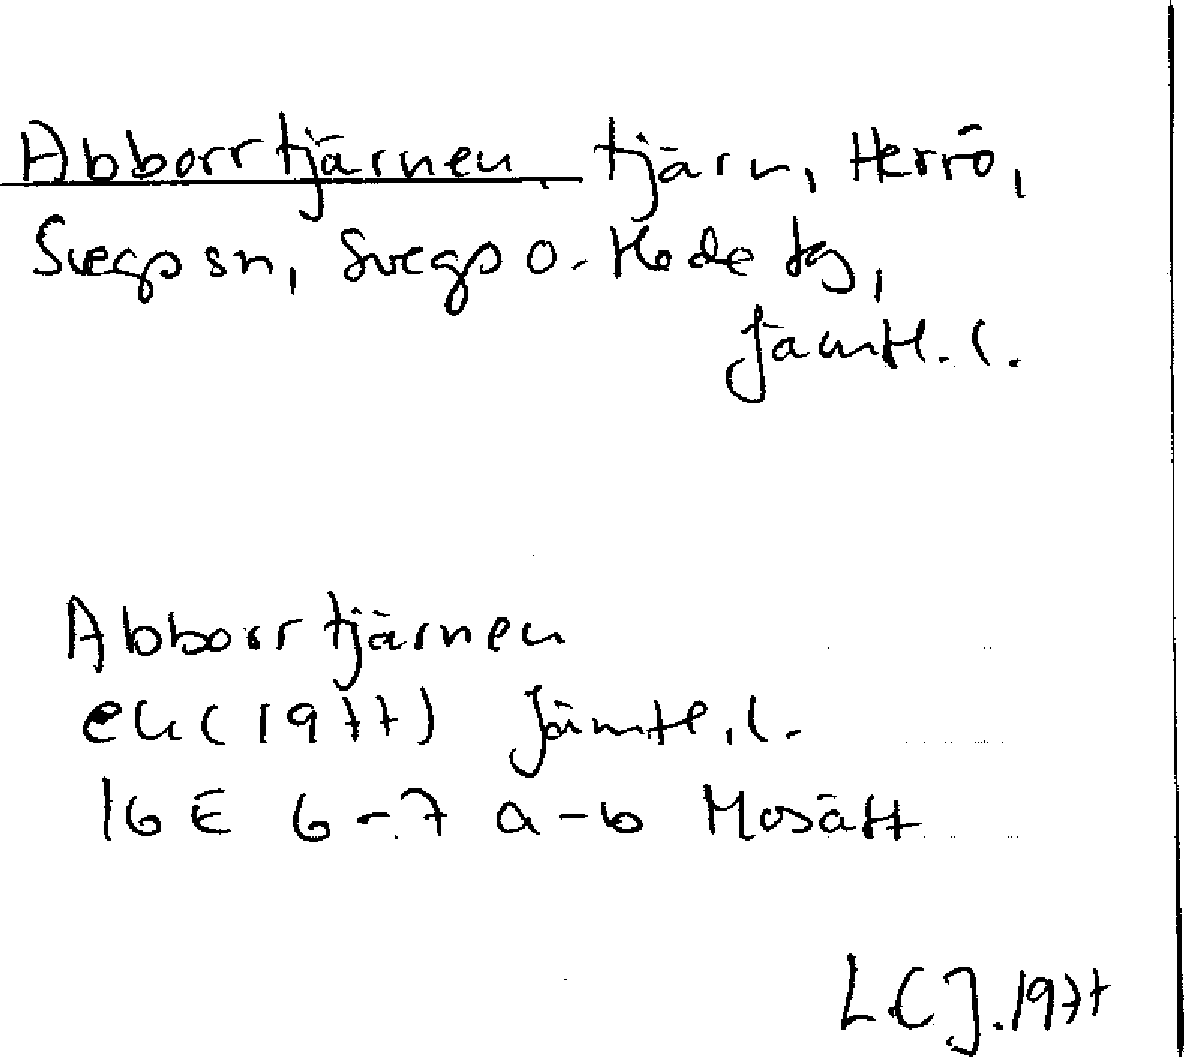 Abborrtjärnen tjärn, Herrö,
Svegs sn, Svegs o. Hede tg,
Jämtl. l.
Abborrtjärnen
ek (1977) Jämtl. l.
16 E 6-7 a-b Mosätt
L C J. 1977